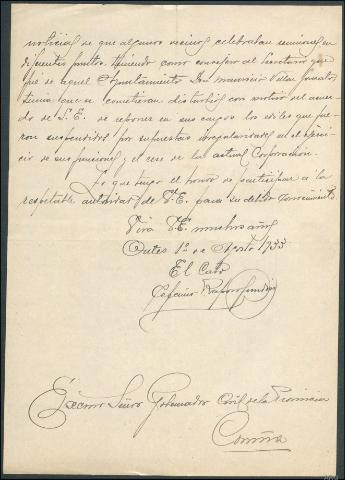 noticias de que algunos vecinos celebraban reuniones en
diferentes puntos, teniendo como consejero al Secretario que
fué de aquel Ayuntamiento Don Mauricio Villar
tema que se cometieran disturbios con motivo del acuer
do de S.E. de reponer en sus cargos los ediles que fue
ron suspendidos por supuestas irregularidades en el ejerci
cio de sus funciones y el cese de la actual Corporación.
Lo que tengo el honor de participar a la
respetable autoridad de V.E. para su debido conocimiento
Viva V.E. muchos años
Outes 1º de Agosto 1933
El Cabo
Ceferino
Excmo Señor Gobernador Civil de la Provincia
Coruña